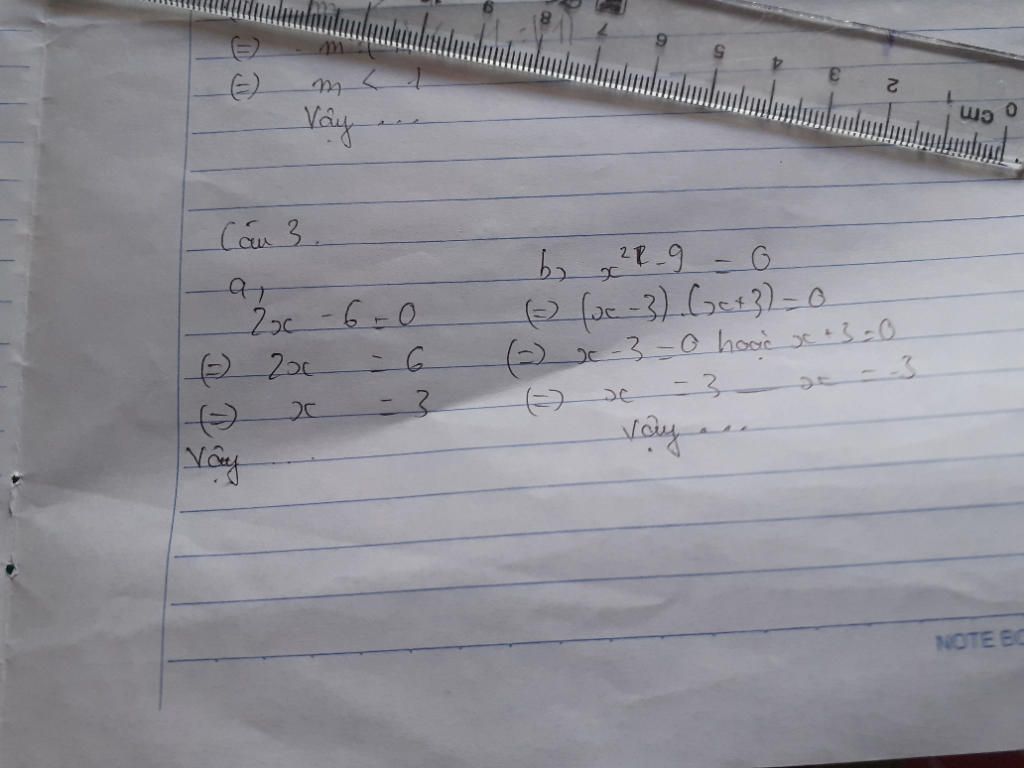 (=) m
(=) m < 1
Vậy ...
10 9 8 7 6 5 4 3 2 1 0 cm
Câu 3.
a,
2x - 6 = 0
(=) 2x = 6
(=) x = 3
Vậy ....
b, x² - 9 = 0
(=) (x - 3).(x + 3) = 0
(=) x - 3 = 0 hoặc x + 3 = 0
(=) x = 3 — x = -3
Vậy ...
NOTE BO